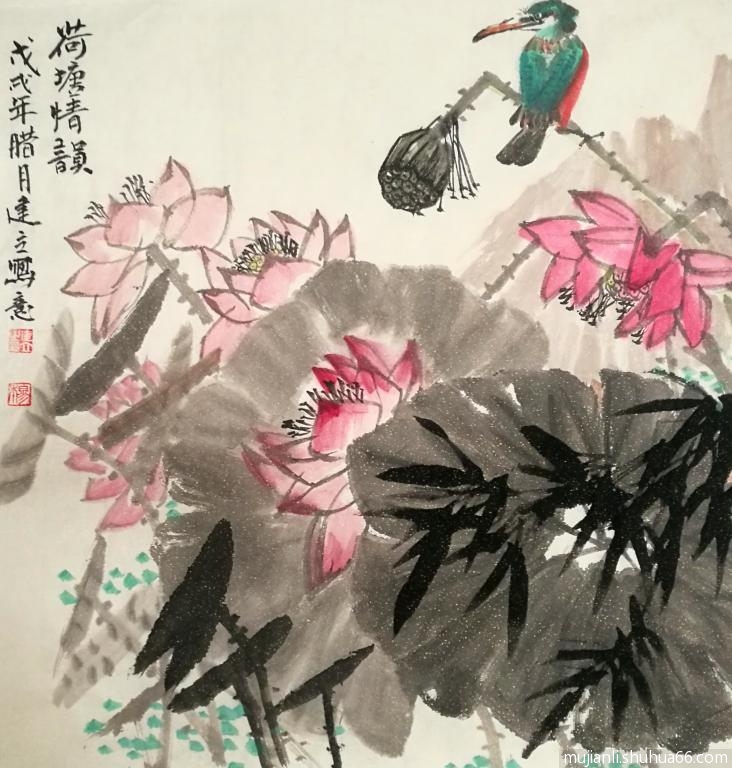 荷塘情韻
戊戌年腊月建立寫意
mujianli.shuhua66.com